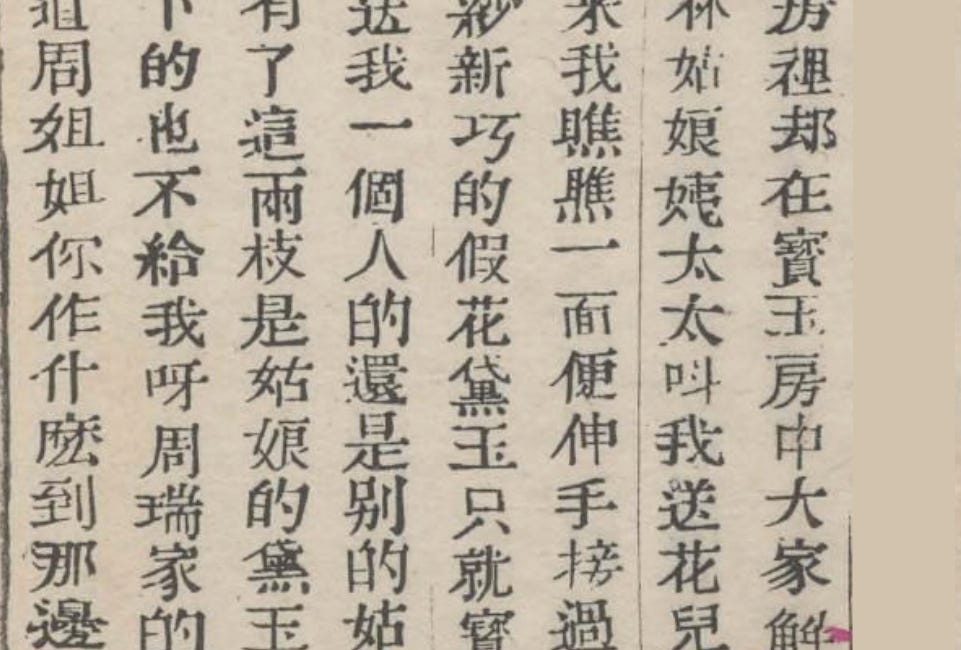 房裡却在寶玉房中大家解
林姑娘姨太太呌我送花兒
來我瞧瞧一面便伸手接過
紗新巧的假花黛玉只就寶
送我一個人的還是别的姑
有了這兩枝是姑娘的黛玉
下的也不給我呀周瑞家的
道周姐姐你作什麽到那邊